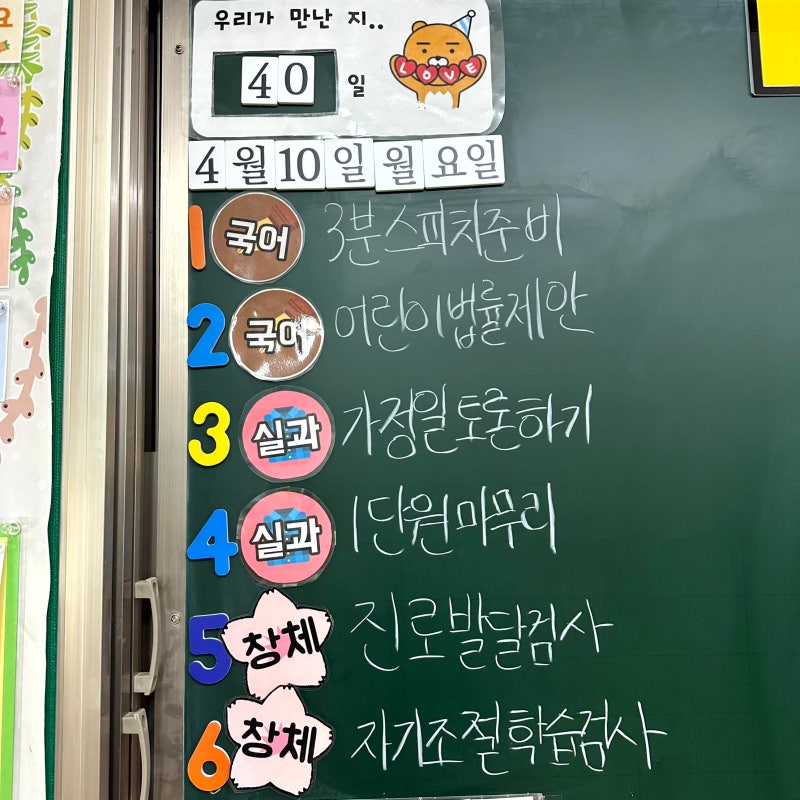 우리가 만난 지..
40 일
LOVE
4월10일월요일
1 국어 3분스피치준비
2 국어 어린이법률제안
3 실과 가정일토론하기
4 실과 1단원마무리
5 창체 진로발달검사
6 창체 자기조절학습검사
요
요